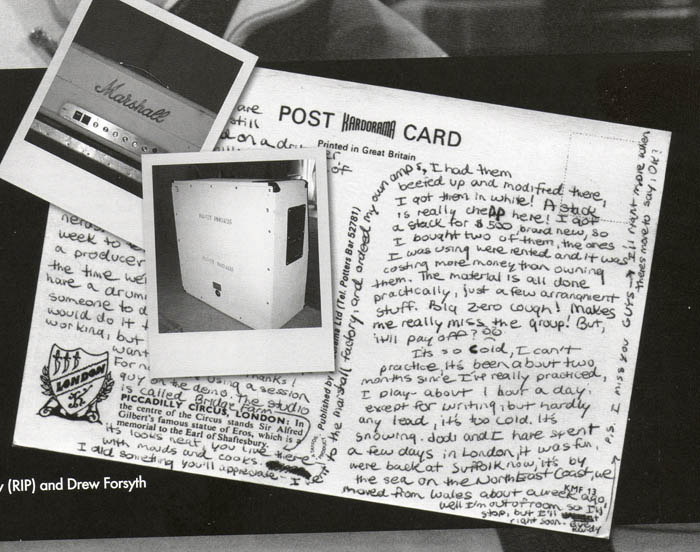 Marshall
POST KARDORAMA CARD
Printed in Great Britain
are
still
of
week to
a producer
the time we
have a drum
someone to d
would do it
working, but
want thanks!
For using a session
guy on the demo. The studio
is called Bridge Farm
LONDON
PICCADILLY CIRCUS, LONDON: In
the centre of the Circus stands Sir Alfred
Gilbert's famous statue of Eros, which is a
memorial to the Earl of Shaftesbury.
its looks neat, you live there
with maids and cooks.
I did something you'll appreciate - I went to the marshall factory, and ordered my own amps, I had them
Published by Ltd (Tel. Potters Bar 52781)
beefed up and modified there,
I got them in white! A stack
is really cheap here! I got
a stack for $500, brand new, so
I bought two of them, the ones
I was using were rented and it was
costing more money than owning
them. The material is all done
practically, just a few arrangment
stuff. Polq Zero Cough! Makes
me really miss the group! But,
it'll pay off?
Its so cold, I can't
practice, it's been about two
months since I've really practiced,
I play about 1 hour a day.
except for writing, but hardly
any lead, it's too cold. It's
snowing. dods and I have spent
a few days in London, it was fun
were back at Suffolk now, it's by
the sea on the NorthEast Coast, we
moved from Wales about a week ago,
KMF 13
well I'm out of room so I'll
stop, but I'll
right soon
P.S. I miss you GUYS I'll right more when
theres more to say, OK?
y (RIP) and Drew Forsyth